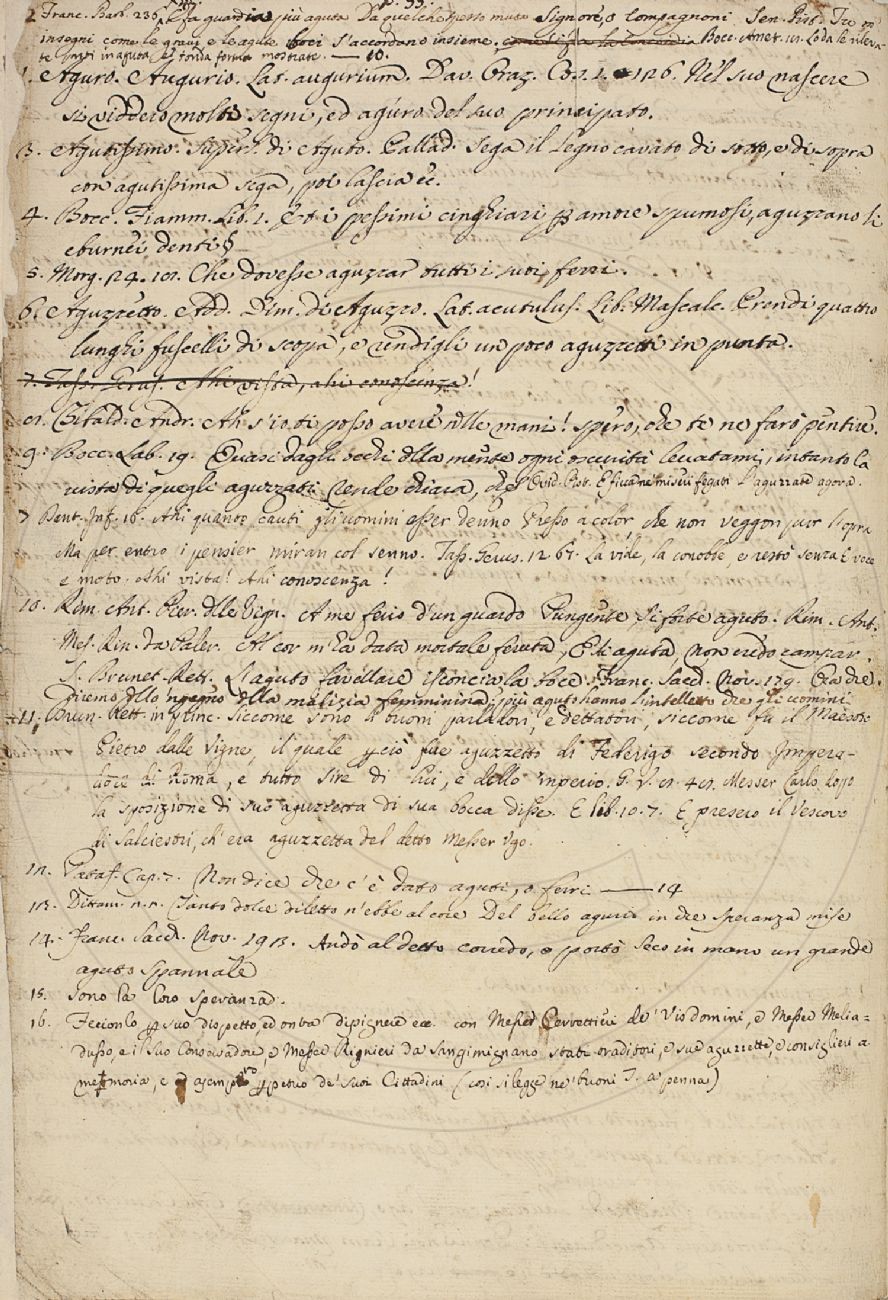 p. 33.
2 Franc. Barb. 235 E fa guardia più aguta Da quel che perto muto Signore, o Compagnoni Sen. Pist. Tre
insegni come le gravi e le agute boci s'accordano insieme, Bocc. Amet. 18. Loda le rileva-
te in aguta e tonda forma mostrate. — 10.
1. Aguro. Augurio. Lat. augurium. Dav. Oraz. Cos. 1. 126. Nel suo nascere
si viddero molti segni, ed aguro del suo principato.
3. Agutissimo. Superl. di Aguto. Pallad. Sega il legno cavato di sotto, e di sopra
con agutissima sega, poi lascia ec.
4. Bocc. Fiamm. Lib. 1. Et i pessimi cinghiari ꝑ amore spumosi, aguzzano li
eburnei denti
5. Morg. 24. 101. Che dovesse aguzzar tutti i suoi ferri.
6. Aguzzetto. Add. Dim. di Aguzzo. Lat. acutulus. Lib. Mascalc. Prendi quattro
lunghi fuscelli di scopa, e rendigli un poco aguzzetti in punta.
7. Tass. Gerus. Ahi vista, ahi conoscenza!
8. Gibald. Andr. Ah s'io ti posso avere nelle mani! spero, che te ne farò pentire.
9. Bocc. Lab. 19. Quasi dagli occhi della mente ogni oscurità levatami, intanto la
vista di quegli aguzzati rende chiara, che Ovid. Pist. E fucine miseri fegati l'aguzzate agora.
7 Dant. Inf. 16. Ahi quanto cauti gli uomini esser denno Presso a color, che non veggon pur l'opra
Ma per entro i pensier miran col senno. Tass. Gerus. 12 67. La vide, la conobbe e restò senza E voce
e moto. Ahi vista! Ahi conoscenza!
10. Rim. Ant. Pier. delle Vign. A me ferio d'un guardo Pungente, sì forte aguto. Rim. Ant.
Mes. Rin. da Paler. Al cor m'ha data mortale feruta, E sì aguta, Non credo campar.
S. Brunet. Rett. L'aguto favellare isconcia la boce Franc. Sacch. Nov. 179. Ora che
diremo dello 'ngegno della malizia femminina, più aguto hanno l'intelletto che gli uomini
11. Brun. Rett. in princ. Siccome sono li buoni parladori, e dettatori, siccome fu il Maestro
Pietro dalle Vigne, il quale ꝑciò fue aguzzetto di Federigo secondo Impera-
dore di Roma, e tutto sire di lui, e dello Imperio. G. V. 8. 48. Messer Carlo dopo
la sposizione di suo aguzzetta di sua bocca disse. E lib. 10. 7. E presero il Vescovo
di Salciestri, ch'era aguzzetta del detto Messer Ugo.
12. Pataf. Cap. 7. Non dice che c'è dato aguti, o ferri — 14
13. Dittam. 2. 2. Tanto dolce diletto n'ebbe al core Del bello agurio in che speranza mise
14. Franc. Sacch. Nov. 193. Andò al detto corredo, e portò seco in mano un grande
aguto spannale
15. Sono la loro speranza.
16. Fecionlo ꝑ suo dispetto, ed onta dipignere ec. con Messer Cerrettieri de' Visdomini, e Messer Melia-
dusso, e il suo Conservadore, e Messer Rignieri da Sangimignano stati traditori, e sue aguzzette, e consiglieri a
memoria, e asempro ꝑpetuo de' suoi Cittadini (così si legge ne' buoni T. a penna)